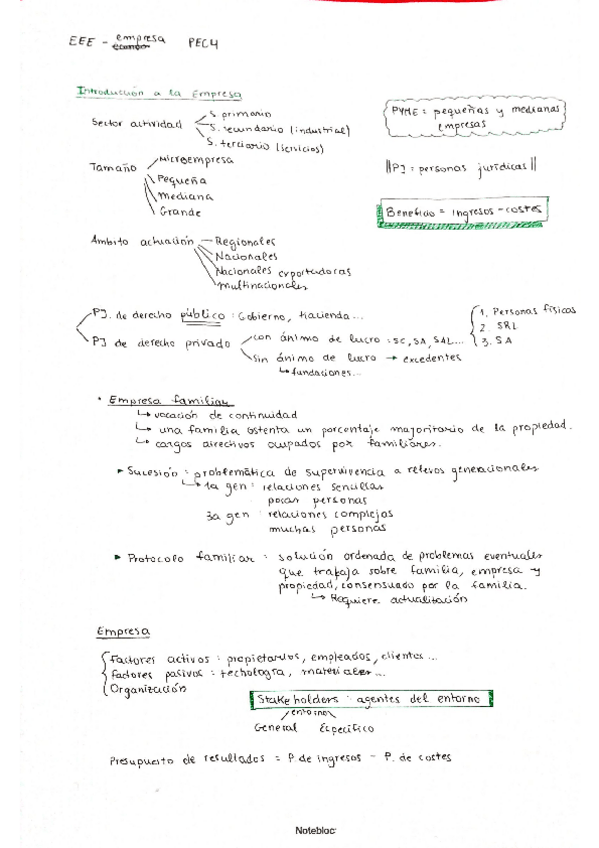 EEE - empresa PEC4
Introducción a la Empresa
Sector actividad
S. primario
S. secundario (industrial)
S. terciario (servicios)
PYME: pequeñas y medianas
empresas
Tamaño
Microempresa
Pequeña
Mediana
Grande
PJ: personas jurídicas
Beneficio = ingresos - costes
Ámbito actuación
Regionales
Nacionales
Nacionales exportadoras
Multinacionales
PJ. de derecho público: Gobierno, Hacienda...
PJ de derecho privado
con ánimo de lucro: SC, SA, SAL...
sin ánimo de lucro → excedentes
↳ fundaciones...
1. Personas físicas
2. SRL
3. SA
• Empresa familiar
↳ vocación de continuidad
↳ una familia ostenta un porcentaje majoritario de la propiedad.
↳ cargos directivos ocupados por familiares.
▸ Sucesión: problemática de supervivencia a relevos generacionales
↳ 1a gen: relaciones sencillas
pocas personas
3a gen: relaciones complejas
muchas personas
▸ Protocolo familiar: solución ordenada de problemas eventuales
que trabaja sobre familia, empresa y
propiedad, consensuado por la familia.
↳ Requiere actualitación
Empresa
Factores activos: propietarios, empleados, clientes...
Factores pasivos: techología, materiales...
Organización
Stakeholders: agentes del entorno
entornos
General Específico
Presupuesto de resultados = P. de ingresos - P. de costes
Notebloc